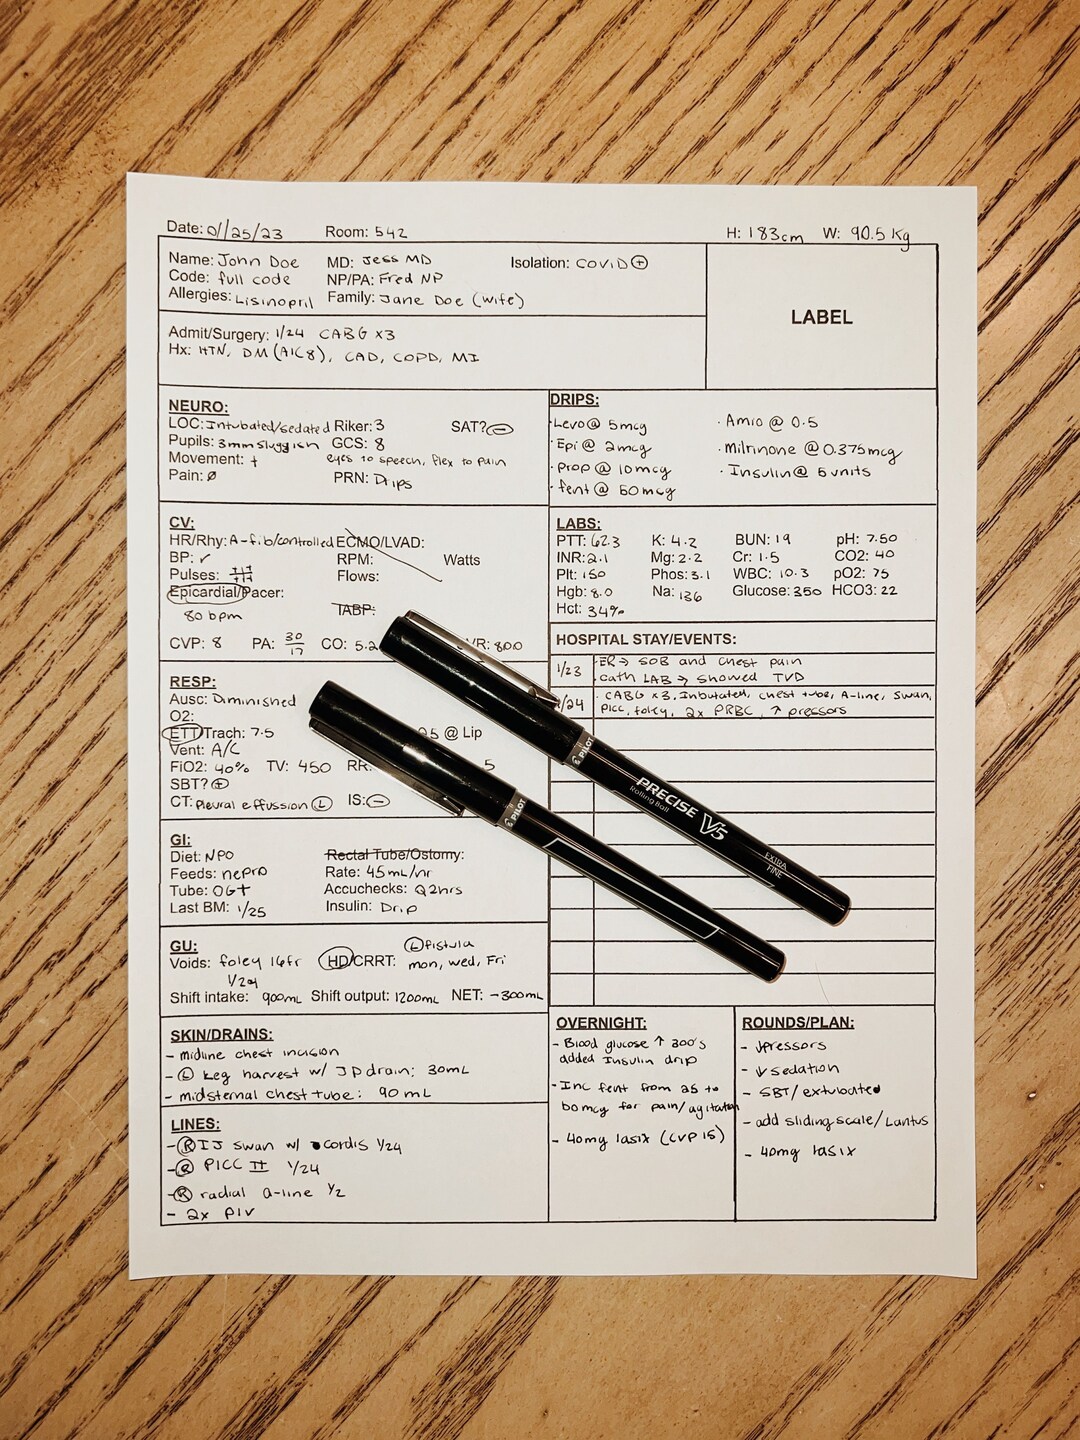 Date: 01/25/23 Room: 542 H: 183cm W: 90.5 Kg
Name: John Doe MD: Jess MD Isolation: COVID⊕
Code: full code NP/PA: Fred NP
Allergies: Lisinopril Family: Jane Doe (wife)
LABEL
Admit/Surgery: 1/24 CABG x3
Hx: HTN, DM (A1C 8), CAD, COPD, MI
NEURO:
LOC: Intubated/sedated Riker: 3 SAT? ⊖
Pupils: 3mm sluggish GCS: 8
Movement: + eyes to speech, flex to pain
Pain: ø PRN: Drips
DRIPS:
· Levo @ 5mcg · Amio @ 0.5
· Epi @ 2mcg · Milrinone @ 0.375mcg
· Prop @ 10mcg · Insulin @ 5 units
· fent @ 50mcg
CV:
HR/Rhy: A-fib/controlled ECMO/LVAD:
BP: ✓ RPM: Watts
Pulses: Flows:
Epicardial/Pacer:
80 bpm IABP:
CVP: 8 PA: 30/17 CO: 5.2 VR: 800
LABS:
PTT: 62.3 K: 4.2 BUN: 19 pH: 7.50
INR: 2.1 Mg: 2.2 Cr: 1.5 CO2: 40
Plt: 150 Phos: 3.1 WBC: 10.3 pO2: 75
Hgb: 8.0 Na: 136 Glucose: 350 HCO3: 22
Hct: 34%
HOSPITAL STAY/EVENTS:
1/23 · ER → SOB and chest pain
· cath LAB → showed TVD
/24 · CABG x3, Inbutated, chest tube, A-line, swan,
PICC, foley, 2x PRBC, ↑ pressors
RESP:
Ausc: Diminished
O2:
ETT/Trach: 7.5 25 @ Lip
Vent: A/C
FiO2: 40% TV: 450 RR: 5
SBT? ⊕
CT: Pleural effussion Ⓛ IS: ⊖
PILOT
PRECISE V5
Rolling Ball
EXTRA
FINE
PILOT
GI:
Diet: NPO Rectal Tube/Ostomy:
Feeds: nepro Rate: 45mL/hr
Tube: OGT Accuchecks: Q2hrs
Last BM: 1/25 Insulin: Drip
GU: Ⓛ fistula
Voids: foley 16fr HD/CRRT: mon, wed, Fri
1/24
Shift intake: 900mL Shift output: 1200mL NET: -300mL
SKIN/DRAINS:
- midline chest incision
- Ⓛ Leg harvest w/ JP drain: 30mL
- midsternal chest tube: 90mL
LINES:
- Ⓡ IJ swan w/ cordis 1/24
- Ⓡ PICC II 1/24
- Ⓡ radial a-line 1/2
- 2x PIV
OVERNIGHT:
- Blood glucose ↑ 300's
added Insulin drip
- Inc fent from 25 to
50mcg for pain/agitation
- 40mg lasix (CVP 15)
ROUNDS/PLAN:
- ↓pressors
- ↓ sedation
- SBT/extubate
- add sliding scale/Lantus
- 40mg lasix